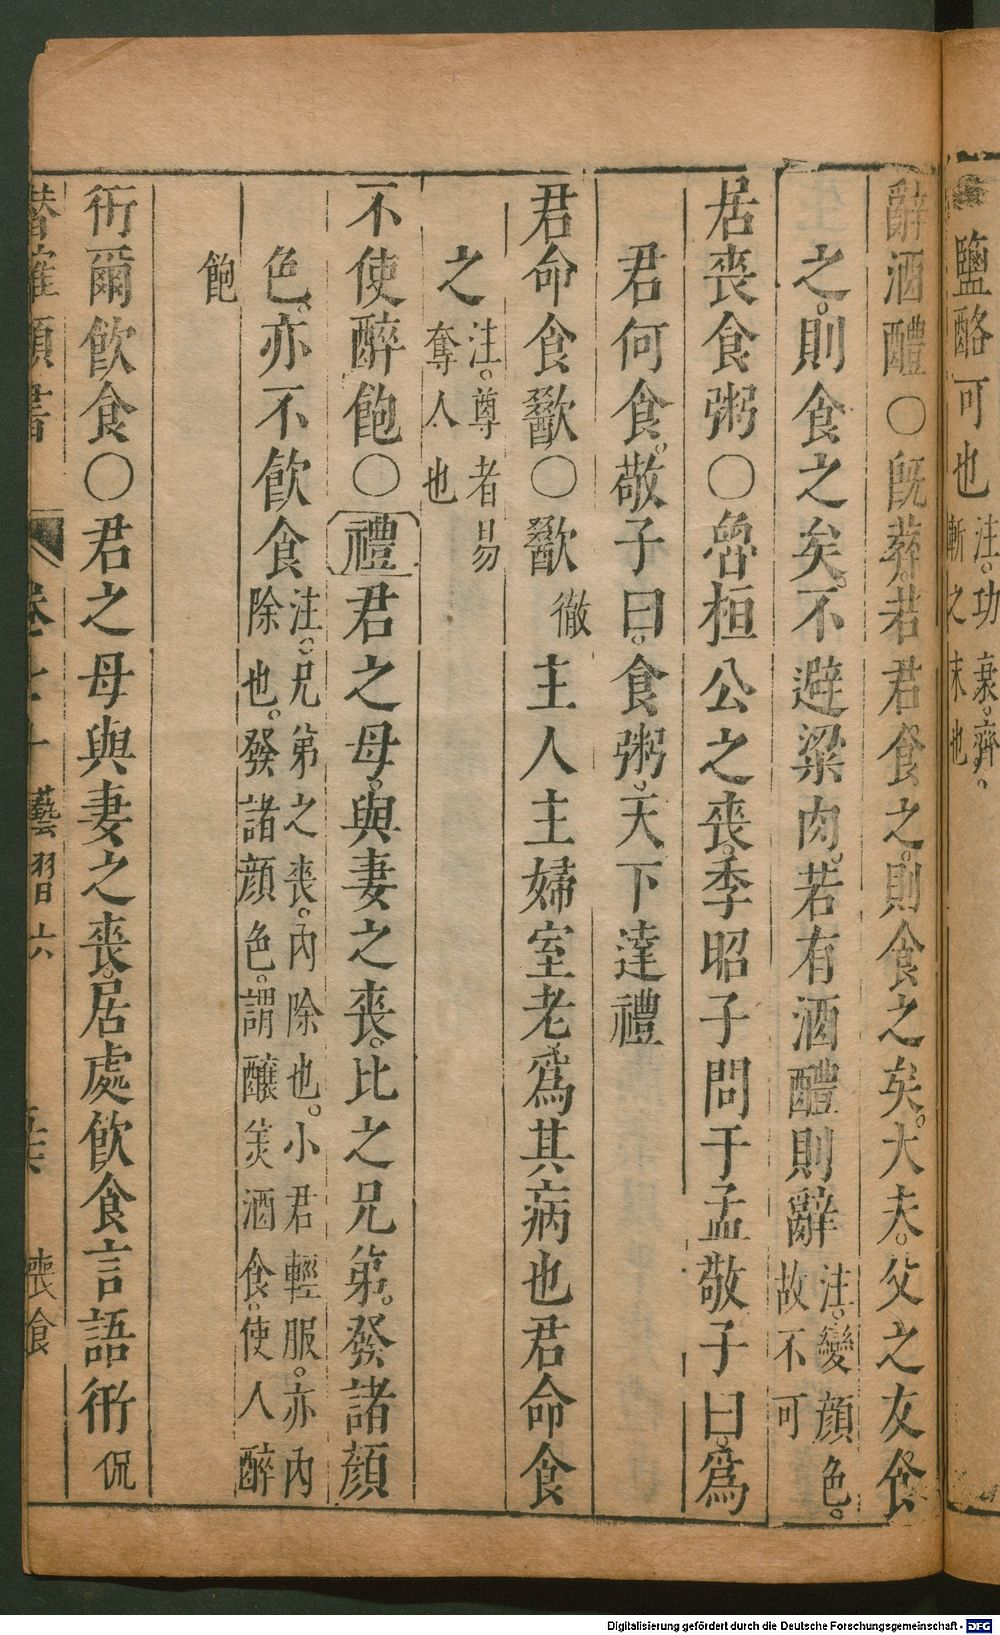 鹽酪可也 注。功衰。齊
斬之末也
辭酒醴○旣葬。君君食之。則食之矣。大夫。父之友食
之。則食之矣。不避粱肉。若有酒醴則辭 注。變顔色。
故不可
居喪食粥○魯桓公之喪。季昭子問于孟敬子曰。爲
君何食。敬子曰。食粥。天下達禮
君命食歠○歠 徹 主人主婦室老爲其病也君命食
之 注。尊者易
奪人也
不使醉飽○禮君之母。與妻之喪。比之兄弟。發諸顔
色。亦不飮食 注。兄弟之喪。內除也。小君輕服。亦內
除也。發諸顔色。謂醲美酒食。使人醉
飽
衎爾飮食○君之母與妻之喪。居處飮食言語衎 侃
類書 卷 藝習六 喪食
Digitalisierung gefördert durch die Deutsche Forschungsgemeinschaft - DFG